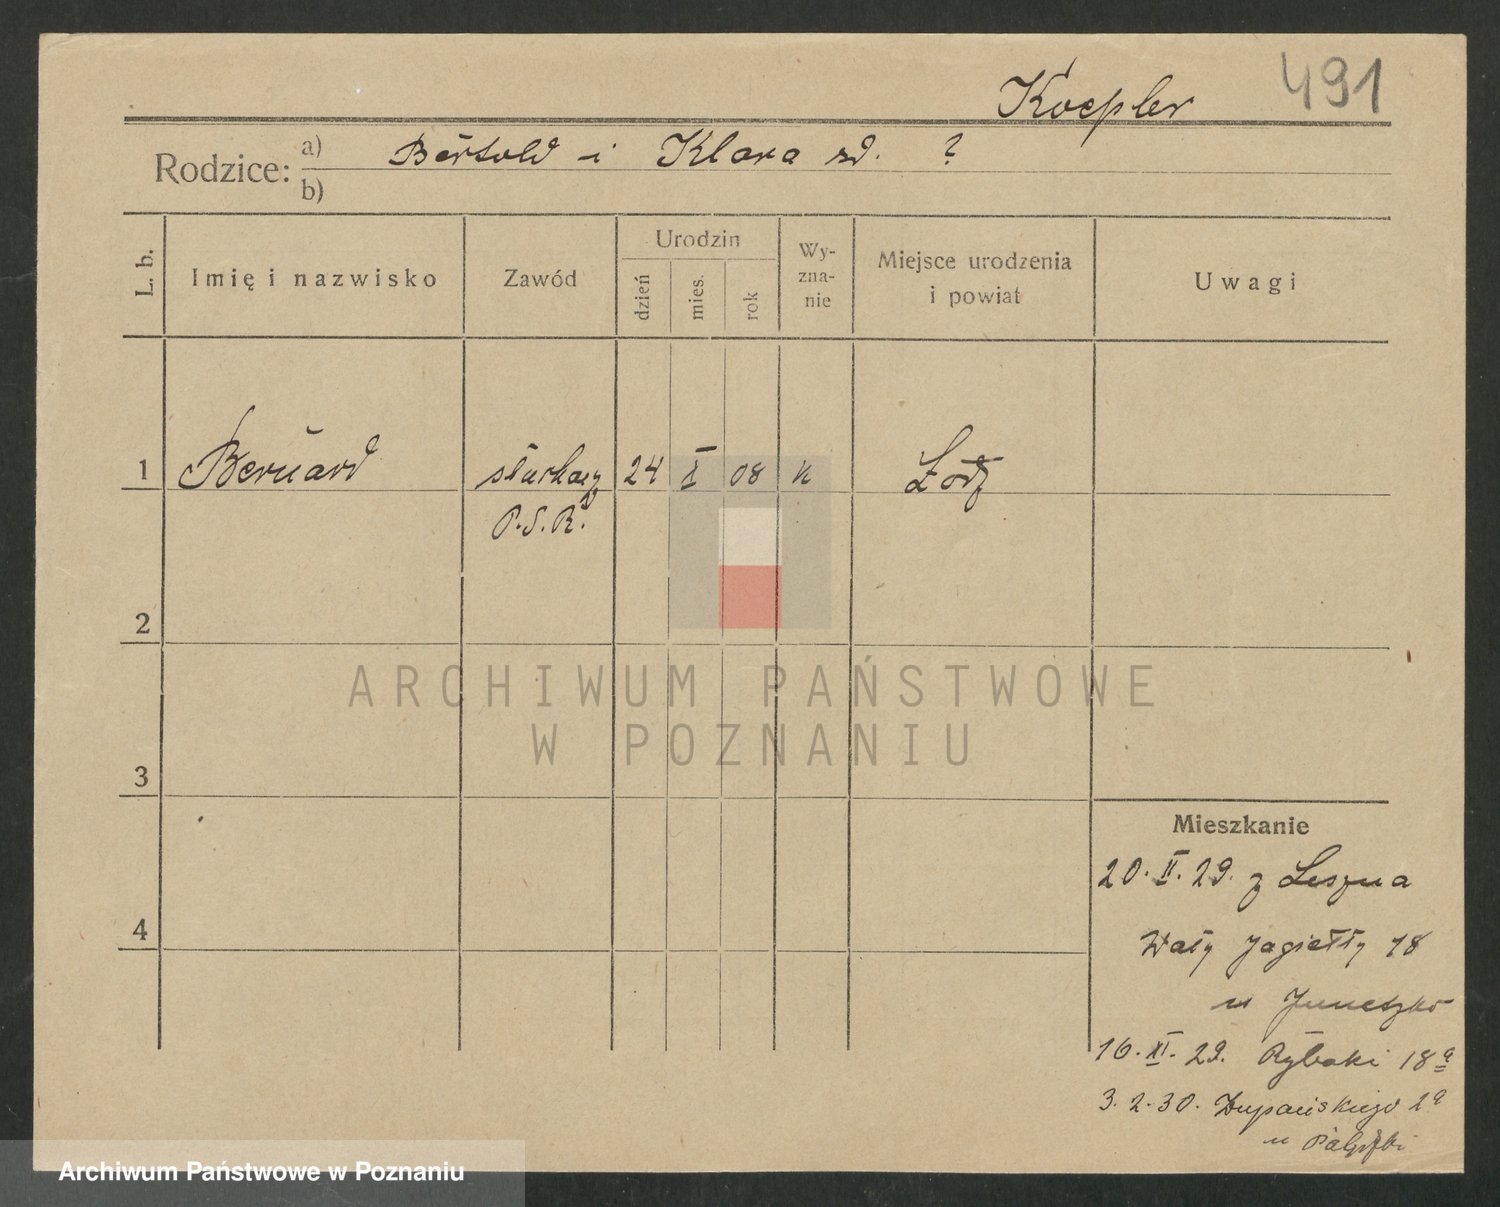 491
Koepler
Rodzice: a) Bertold i Klara zd. ?
b)
L. b. Imię i nazwisko Zawód Urodzin dzień mies. rok Wy-zna-nie Miejsce urodzenia i powiat Uwagi
1 Bernard słuchacz 24 X 08 k Łódź
P.S.R.
2
ARCHIWUM PAŃSTWOWE
W POZNANIU
3
Mieszkanie
20. II. 29. z Leszna
4
Wały Jagiełły 18
u
16. XI. 29. Rybaki 18a
3. 2. 30. Żupańskiego 2a
u
Archiwum Państwowe w Poznaniu